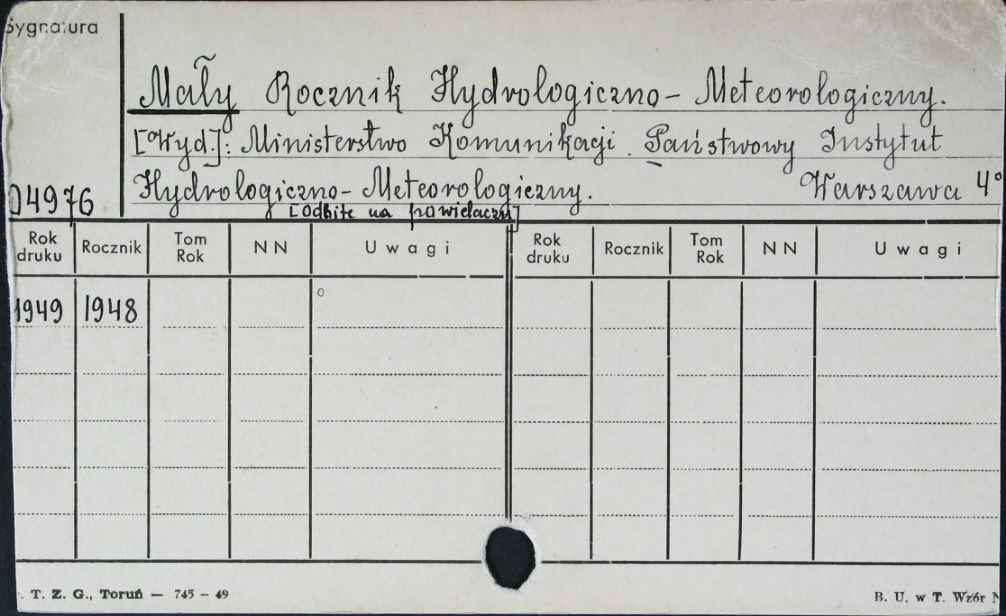 Sygnatura
Mały Rocznik Hydrologiczno-Meteorologiczny.
[Wyd.]: Ministerstwo Komunikacji. Państwowy Instytut
04976 Hydrologiczno-Meteorologiczny. Warszawa 4°
[Odbite na powielaczu]
Rok druku Rocznik Tom Rok NN Uwagi Rok druku Rocznik Tom Rok NN Uwagi
1949 1948
T. Z. G., Toruń — 745 – 49 B. U. w T. Wzór